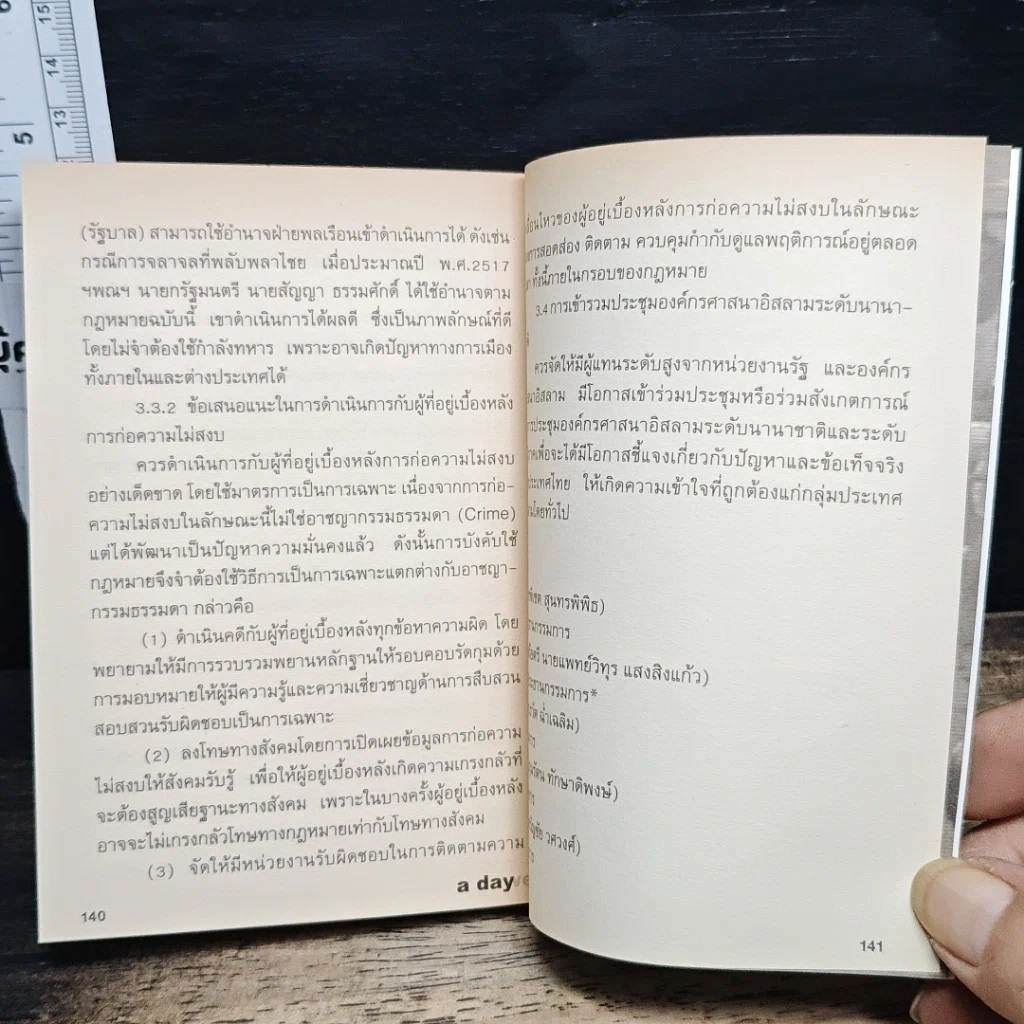 6
15
14
5
13
(รัฐบาล) สามารถใช้อำนาจฝ่ายพลเรือนเข้าดำเนินการได้ ดังเช่น
กรณีการจลาจลที่พลับพลาไชย เมื่อประมาณปี พ.ศ.2517
ฯพณฯ นายกรัฐมนตรี นายสัญญา ธรรมศักดิ์ ได้ใช้อำนาจตาม
กฎหมายฉบับนี้ เขาดำเนินการได้ผลดี ซึ่งเป็นภาพลักษณ์ที่ดี
โดยไม่จำต้องใช้กำลังทหาร เพราะอาจเกิดปัญหาทางการเมือง
ทั้งภายในและต่างประเทศได้
3.3.2 ข้อเสนอแนะในการดำเนินการกับผู้ที่อยู่เบื้องหลัง
การก่อความไม่สงบ
ควรดำเนินการกับผู้ที่อยู่เบื้องหลังการก่อความไม่สงบ
อย่างเด็ดขาด โดยใช้มาตรการเป็นการเฉพาะ เนื่องจากการก่อ-
ความไม่สงบในลักษณะนี้ไม่ใช่อาชญากรรมธรรมดา (Crime)
แต่ได้พัฒนาเป็นปัญหาความมั่นคงแล้ว ดังนั้นการบังคับใช้
กฎหมายจึงจำต้องใช้วิธีการเป็นการเฉพาะแตกต่างกับอาชญา-
กรรมธรรมดา กล่าวคือ
(1) ดำเนินคดีกับผู้ที่อยู่เบื้องหลังทุกข้อหาความผิด โดย
พยายามให้มีการรวบรวมพยานหลักฐานให้รอบคอบรัดกุมด้วย
การมอบหมายให้ผู้มีความรู้และความเชี่ยวชาญด้านการสืบสวน
สอบสวนรับผิดชอบเป็นการเฉพาะ
(2) ลงโทษทางสังคมโดยการเปิดเผยข้อมูลการก่อความ
ไม่สงบให้สังคมรับรู้ เพื่อให้ผู้อยู่เบื้องหลังเกิดความเกรงกลัวที่
จะต้องสูญเสียฐานะทางสังคม เพราะในบางครั้งผู้อยู่เบื้องหลัง
อาจจะไม่เกรงกลัวโทษทางกฎหมายเท่ากับโทษทางสังคม
(3) จัดให้มีหน่วยงานรับผิดชอบในการติดตามความ
a day
140
ของผู้อยู่เบื้องหลังการก่อความไม่สงบในลักษณะ
การสอดส่อง ติดตาม ควบคุมกำกับดูแลพฤติการณ์อยู่ตลอด
ทั้งนี้ภายในกรอบของกฎหมาย
3.4 การเข้ารวมประชุมองค์กรศาสนาอิสลามระดับนานา-
ควรจัดให้มีผู้แทนระดับสูงจากหน่วยงานรัฐ และองค์กร
อิสลาม มีโอกาสเข้าร่วมประชุมหรือร่วมสังเกตการณ์
ประชุมองค์กรศาสนาอิสลามระดับนานาชาติและระดับ
เพื่อจะได้มีโอกาสชี้แจงเกี่ยวกับปัญหาและข้อเท็จจริง
ประเทศไทย ให้เกิดความเข้าใจที่ถูกต้องแก่กลุ่มประเทศ
โดยทั่วไป
สุนทรพิพิธ)
กรรมการ
นายแพทย์วิทุร แสงสิงแก้ว)
ประธานกรรมการ*
ฉ่ำเฉลิม)
ทักษาดิพงษ์)
วศวงศ์)
141